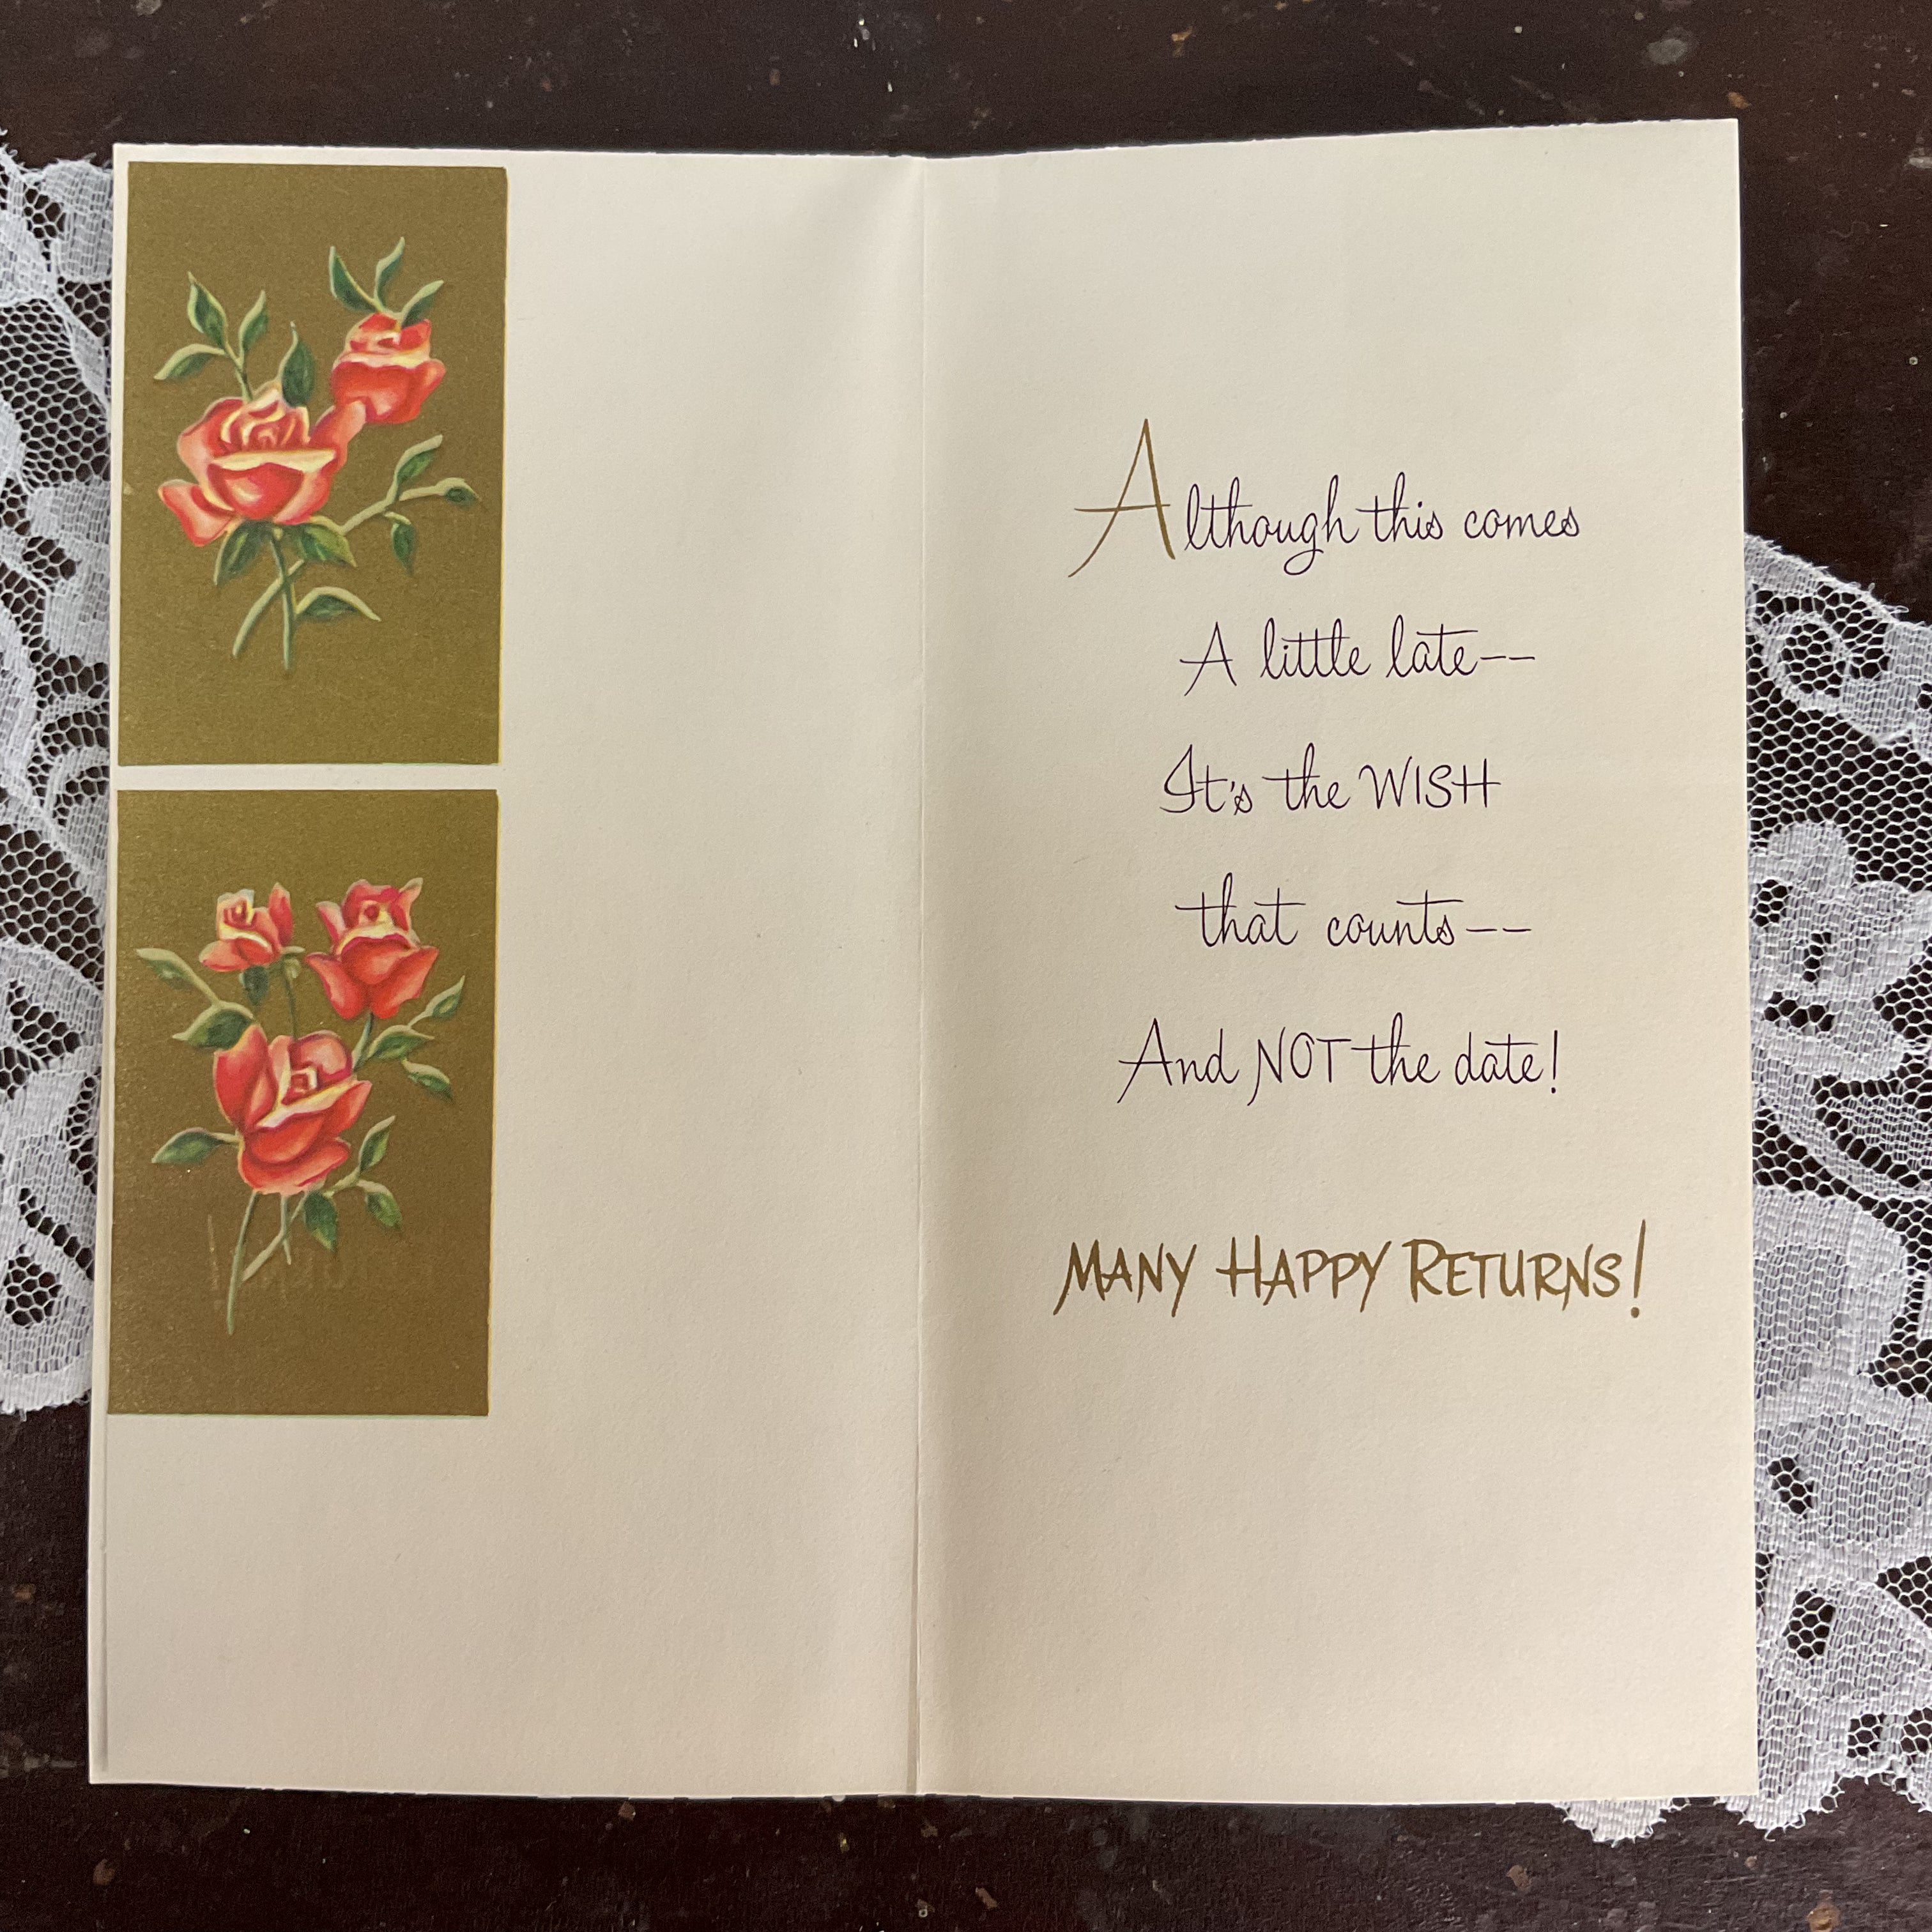 Although this comes
A little late--
It's the WISH
that counts--
And NOT the date!
MANY HAPPY RETURNS!